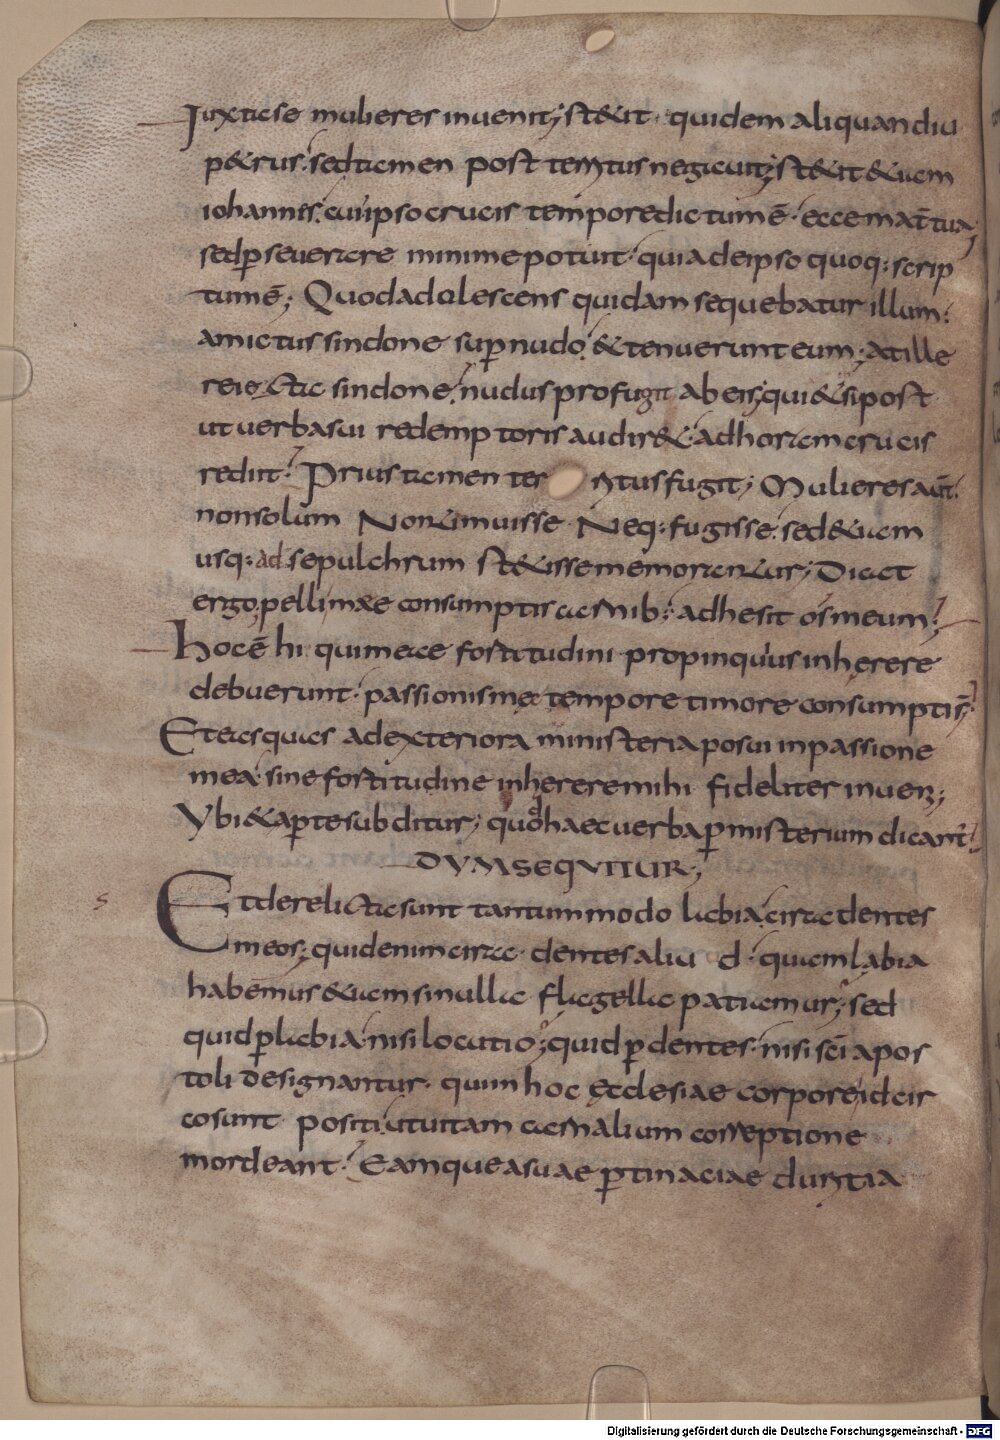 Iuxta se mulieres invenit; stetit · quidem aliquandiu
p&rus · sed tamen post territus negavit; st&it &iam
iohannes · cui ipso crucis tempore dictum ē · ecce mat̄ tua;
sed p̱severare minime potuit · quia de ipso quoq: scrip
tum ē; Quod adolescens quidam sequebatur illum ·
amictus sindone sup̱ nudo · & tenuerunt eum; at ille
reiecta sindone · nudus profugit ab eis; qui &si post
ut verba sui redemptoris audir& · ad horam crucis
rediit · Prius tamen ter ritus fugit; Mulieres aut̄
non solum Non timuisse Neq: fugisse · sed &iam
usq: ad sepulchrum st&isse memorantur; Dicat
ergo pelli meae consumptis carnib: · adhesit os meum;
hoc ē hi qui meae fortitudini propinquius inherere
debuerunt · passionis meę tempore timore consumpti s̄;
Et eas quas ad exteriora ministeria posui in passione
mea · sine fortitudine inherere mihi fideliter inveni;
Ubi & ap̱te subditur; quod haec verba p̱ misterium dicant̄
DUM SEQUITUR;
s Et derelicta sunt tantummodo labia circa dentes
meos; quid enim circa dentes aliud · quam labia
habemus &iam si nulla flagella patiamur; sed
quid p̱ labia · nisi locutio; quid p̱ dentes · nisi sc̄i apos
toli designantur · qui in hoc ecclesiae corpore idcir
co sunt positi · ut vitam carnalium correptione
mordeant · Eamque a suae p̱tinaciae duritia
Digitalisierung gefördert durch die Deutsche Forschungsgemeinschaft - DFG